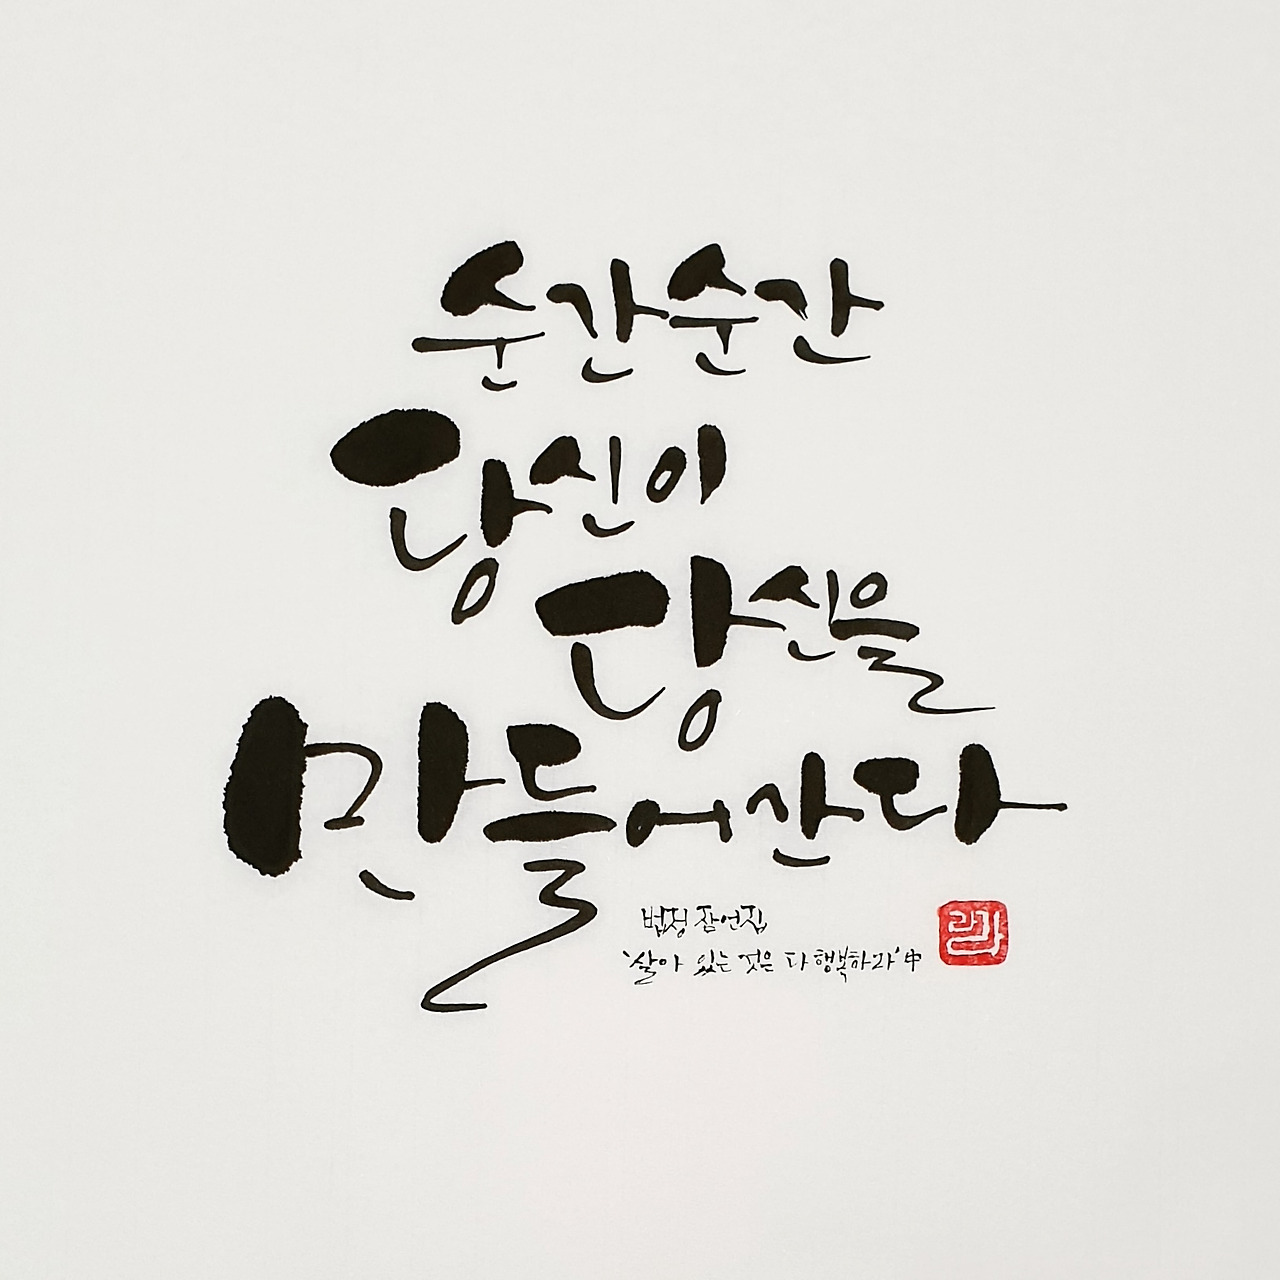 순간순간
당신이
당신을
만들어간다
법정 잠언집
'살아 있는 것은 다 행복하라' 中